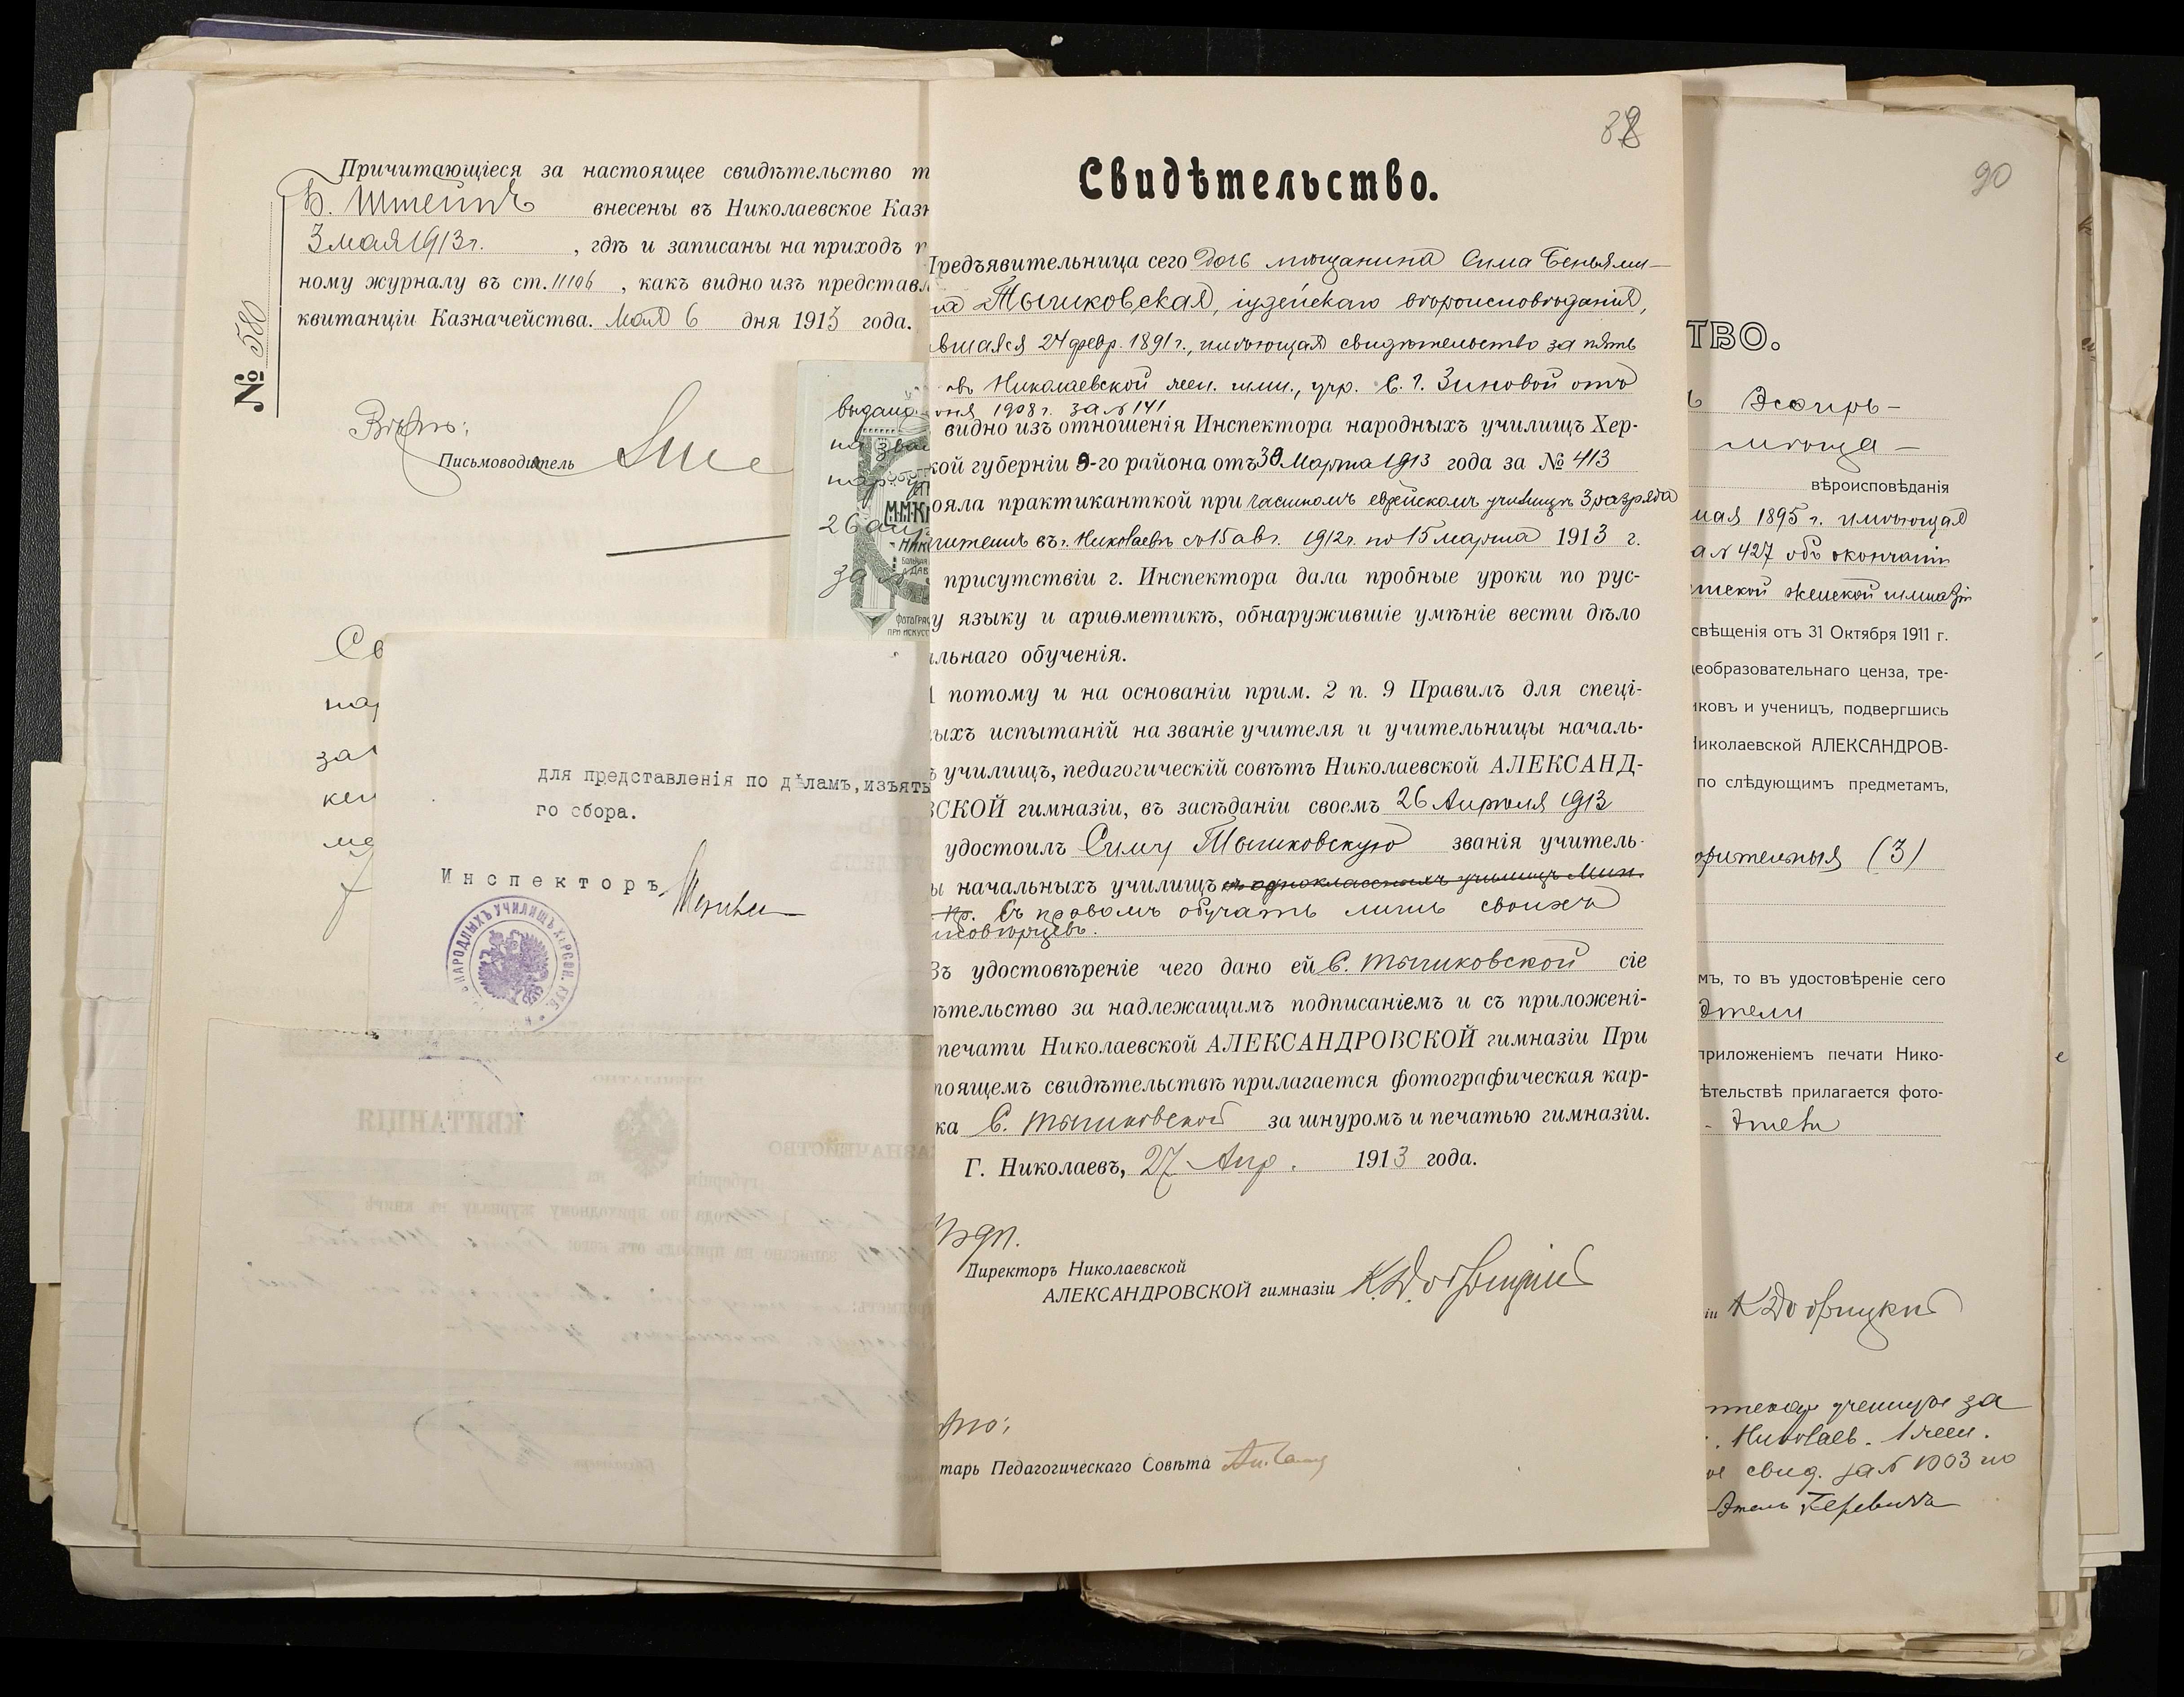 Причитающіеся за настоящее свидѣтельство т
Б. Штейнъ внесены въ Николаевское Казн
3 мая 1913 г. , гдѣ и записаны на приходъ п
ному журналу въ ст. 11106 , какъ видно изъ представл
квитанціи Казначейства. Мая 6 дня 1913 года.
№ 580
Вѣрно:
Письмоводитель
выдано
на зва
26 ап
за №
М.М.К
НИК
ФОТОГРАФ
ПРИ ИСКУСС
Св
на
за
кен
ме
для представленія по дѣламъ, изъять
го сбора.
Инспекторъ
НАРОДНЫХЪ УЧИЛИЩЪ ХЕРСОН. ГУБ.
КВИТАНЦІЯ
88
Свидѣтельство.
Предъявительница сего дочь мѣщанина Сима Беньями-
на Тышковская, іудейскаго вѣроисповѣданія,
вшаяся 24 февр. 1891 г., имѣющая свидѣтельство за пять
овъ Николаевской жен. гимн., учр. С. Г. Зиновой отъ
юня 1908 г. за № 141
видно изъ отношенія Инспектора народныхъ училищъ Хер-
кой губерніи 9-го района отъ 30 Марта 1913 года за № 413
ояла практиканткой при частномъ еврейскомъ училищѣ 3 разряда
въ г. Николаевѣ съ 15 авг. 1912 г. по 15 марта 1913 г.
присутствіи г. Инспектора дала пробные уроки по рус-
у языку и ариѳметикѣ, обнаружившіе умѣніе вести дѣло
льнаго обученія.
потому и на основаніи прим. 2 п. 9 Правилъ для спеці-
ыхъ испытаній на званіе учителя и учительницы началь-
ъ училищъ, педагогическій совѣтъ Николаевской АЛЕКСАНД-
ВСКОЙ гимназіи, въ засѣданіи своемъ 26 Апрѣля 1913
удостоилъ Симу Тышковскую званія учитель-
ы начальныхъ училищъ и одноклассныхъ училищъ Мин.
Пр. Съ правомъ обучать лишь своихъ
иновѣрцевъ.
Въ удостовѣреніе чего дано ей С. Тышковской сіе
ѣтельство за надлежащимъ подписаніемъ и съ приложені-
печати Николаевской АЛЕКСАНДРОВСКОЙ гимназіи При
тоящемъ свидѣтельствѣ прилагается фотографическая кар-
ка С. Тышковской за шнуромъ и печатью гимназіи.
Г. Николаевъ, 27 Апр. 1913 года.
Директоръ Николаевской
АЛЕКСАНДРОВСКОЙ гимназіи К. Добровицкій
тарь Педагогическаго Совѣта
90
ТВО.
Эсѳирь-
мѣща-
вѣроисповѣданія
мая 1895 г. имѣющая
а № 427 объ окончаніи
женской гимназіи
свѣщенія отъ 31 Октября 1911 г.
еобразовательнаго ценза, тре-
иковъ и ученицъ, подвергшись
Николаевской АЛЕКСАНДРОВ-
по слѣдующимъ предметамъ,
орительныя (3)
мъ, то въ удостовѣреніе сего
Этели
приложеніемъ печати Нико-
ѣтельствѣ прилагается фото-
- Этели
іи К Добровицкій
ученицы за
. Николаев. 1 жен.
ое свид. за № 1003 по